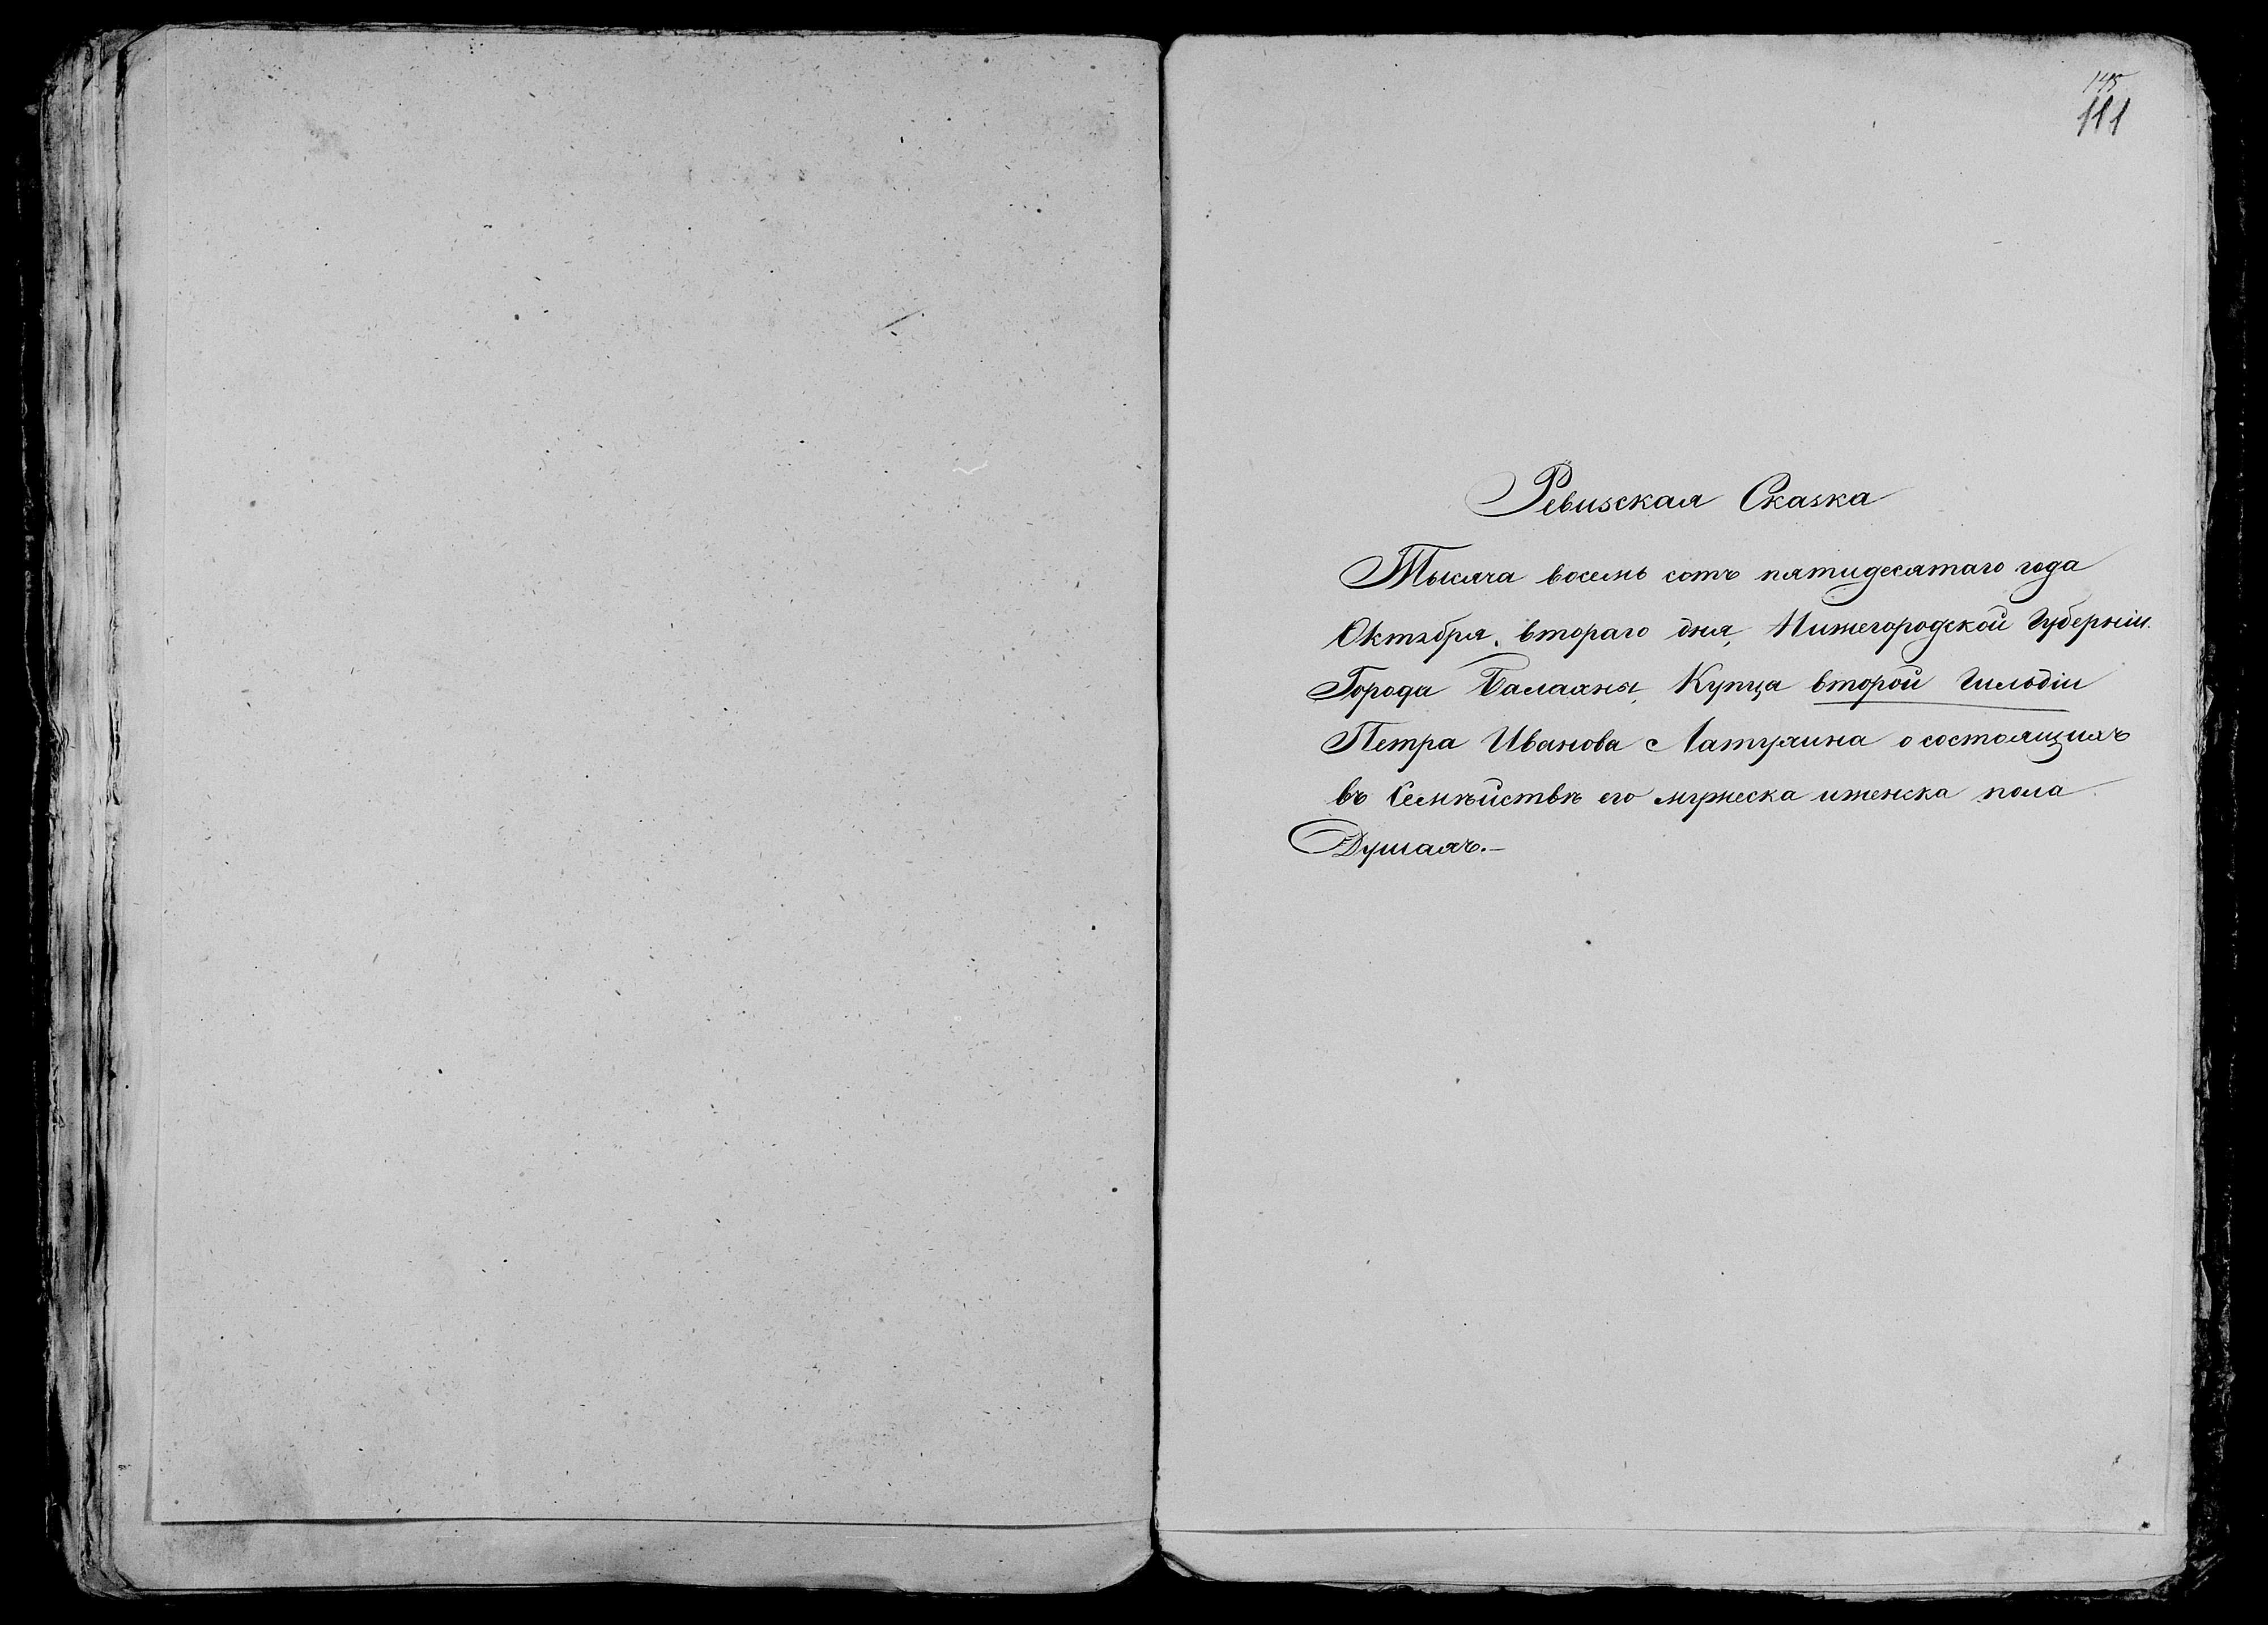 145
111
Ревизская Сказка
Тысяча восемь сотъ пятидесятаго года
Октября, втораго дня, Нижегородской Губерніи.
Города Балахны, Купца второй Гильдіи
Петра Иванова Латухина о состоящихъ
въ Семѣйствѣ его мужеска иженска пола
Душахъ.—